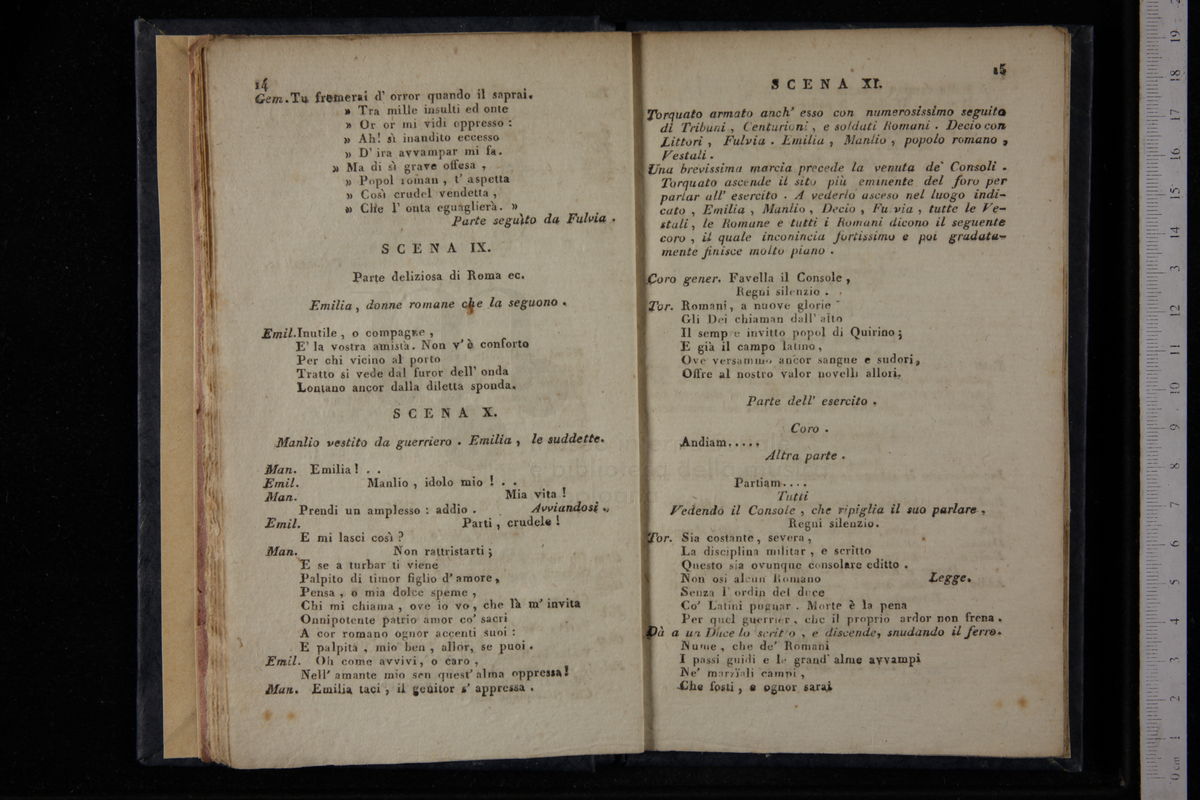 14
Gem. Tu fremerai d' orror quando il saprai.
» Tra mille insulti ed onte
» Or or mi vidi oppresso :
» Ah! sì inandito eccesso
» D' ira avvampar mi fa.
» Ma di sì grave offesa ,
» Popol roman , t' aspetta
» Così crudel vendetta ,
» Che l' onta eguaglierà. »
Parte seguìto da Fulvia .
SCENA IX.
Parte deliziosa di Roma ec.
Emilia , donne romane che la seguono .
Emil. Inutile , o compagne ,
E' la vostra amistà. Non v' è conforto
Per chi vicino al porto
Tratto si vede dal furor dell' onda
Lontano ancor dalla diletta sponda.
SCENA X.
Manlio vestito da guerriero . Emilia , le suddette.
Man. Emilia ! . .
Emil. Manlio , idolo mio ! . .
Man. Mia vita !
Prendi un amplesso : addio . Avviandosi .
Emil. Parti , crudele !
E mi lasci così ?
Man. Non rattristarti ;
E se a turbar ti viene
Palpito di timor figlio d' amore ,
Pensa , o mia dolce speme ,
Chi mi chiama , ove io vo , che là m' invita
Onnipotente patrio amor co' sacri
A cor romano ognor accenti suoi :
E palpita , mio ben , allor, se puoi .
Emil. Oh come avvivi, o caro ,
Nell' amante mio sen quest' alma oppressa !
Man. Emilia taci , il genitor s' appressa .
15
SCENA XI.
Torquato armato anch' esso con numerosissimo seguito
di Tribuni , Centurioni , e soldati Romani . Decio con
Littori , Fulvia . Emilia , Manlio , popolo romano ,
Vestali .
Una brevissima marcia precede la venuta de' Consoli .
Torquato ascende il sito più eminente del foro per
parlar all' esercito . A vederlo asceso nel luogo indi-
cato , Emilia , Manlio , Decio , Fulvia , tutte le Ve-
stali , le Romane e tutti i Romani dicono il seguente
coro , il quale inconincia fortissimo e poi gradata-
mente finisce molto piano .
Coro gener. Favella il Console ,
Regni silenzio . .
Tor. Romani , a nuove glorie
Gli Dei chiaman dall' alto
Il sempre invitto popol di Quirino ;
E già il campo latino ,
Ove versammo ancor sangue e sudori ,
Offre al nostro valor novelli allori.
Parte dell' esercito .
Coro .
Andiam.....
Altra parte .
Partiam....
Tutti
Vedendo il Console , che ripiglia il suo parlare ,
Regni silenzio.
Tor. Sia costante , severa ,
La disciplina militar , e scritto
Questo sia ovunque consolare editto .
Non osi alcun Romano Legge.
Senza l' ordin del duce
Co' Latini pugnar . Morte è la pena
Per quel guerrier , che il proprio ardor non frena .
Dà a un Duce lo scritto , e discende, snudando il ferro.
Nume , che de' Romani
I passi guidi e le grand' alme avvampi
Ne' marzïali campi ,
Che fosti , e ognor sarai